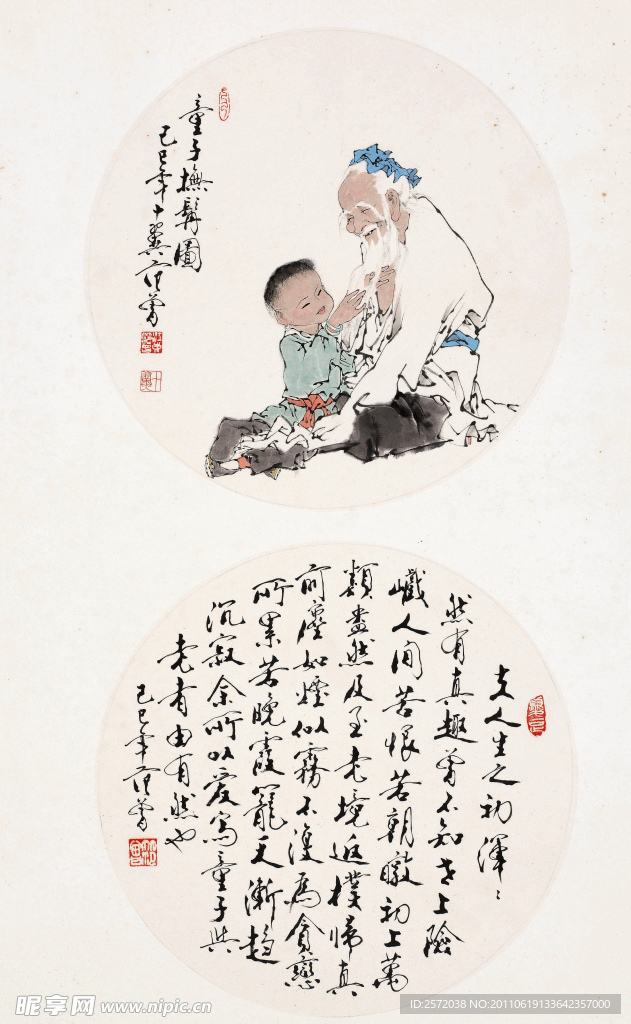 童子撫髯圖
己巳年十翼范曾
夫人生之初渾〻
然有真趣曾不知世上險
巇人间苦恨若朝暾初上萬
類盎然及至老境返樸歸真
前塵如煙似霧不復為貪戀
所累若晚霞籠天漸趨
沉寂余所以爱寫童子與
老者由有然也
己巳年范曾
昵享网 www.nipic.cn
ID:2572038 NO:20110619133642357000